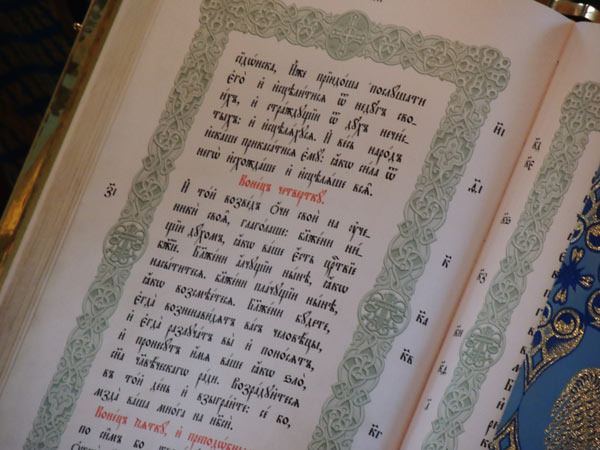 сїдѡ́нска, И҆̀же прїидо́ша послꙋ́шати
є҆гѡ̀ и҆ и҆сцѣли́тисѧ ѿ недꙋ̑гъ сво-
и́хъ, и҆ стра́ждꙋщїи ѿ дꙋ̑хъ нечи́с-
тыхъ: и҆ и҆сцѣлѧ́хꙋсѧ. И҆ ве́сь наро́дъ
и҆ска́ше прикаса́тисѧ є҆мꙋ̀: ꙗ҆́кѡ си́ла ѿ
негѡ̀ и҆схожда́ше и҆ и҆сцѣлѧ́ше всѧ̑.
Коне́цъ четверткꙋ̀.
И҆ то́й возве́дъ ѻ҆́чи своѝ на ᲂу҆че-
никѝ своѧ̑, глаго́лаше: бл҃же́ни ни́-
щїи дꙋ́хомъ, ꙗ҆́кѡ ва́ше є҆́сть црⷭ҇твїе
бж҃їе. Бл҃же́ни а҆́лчꙋщїи ны́нѣ, ꙗ҆́кѡ
насы́титесѧ. бл҃же́ни пла́чꙋщїи ны́нѣ,
ꙗ҆́кѡ возсмѣе́тесѧ. Бл҃же́ни бꙋ́дете,
є҆гда̀ возненави́дѧтъ ва́съ человѣ́цы,
и҆ є҆гда̀ разлꙋча́тъ вы̀ и҆ поно́сѧтъ,
и҆ пронесꙋ́тъ и҆́мѧ ва́ше ꙗ҆́кѡ ѕло̀,
сн҃а чл҃вѣ́ческагѡ ра́ди. Возра́дꙋйтесѧ
въ то́й де́нь и҆ взыгра́йте: се́ бо,
мзда̀ ва́ша мно́га на нб҃сѝ.
Коне́цъ пѧткꙋ̀, и҆ преподѡ́бны
по си̑мъ бо
н҃і
к҃
к҃а
к҃в
к҃г
з҃і